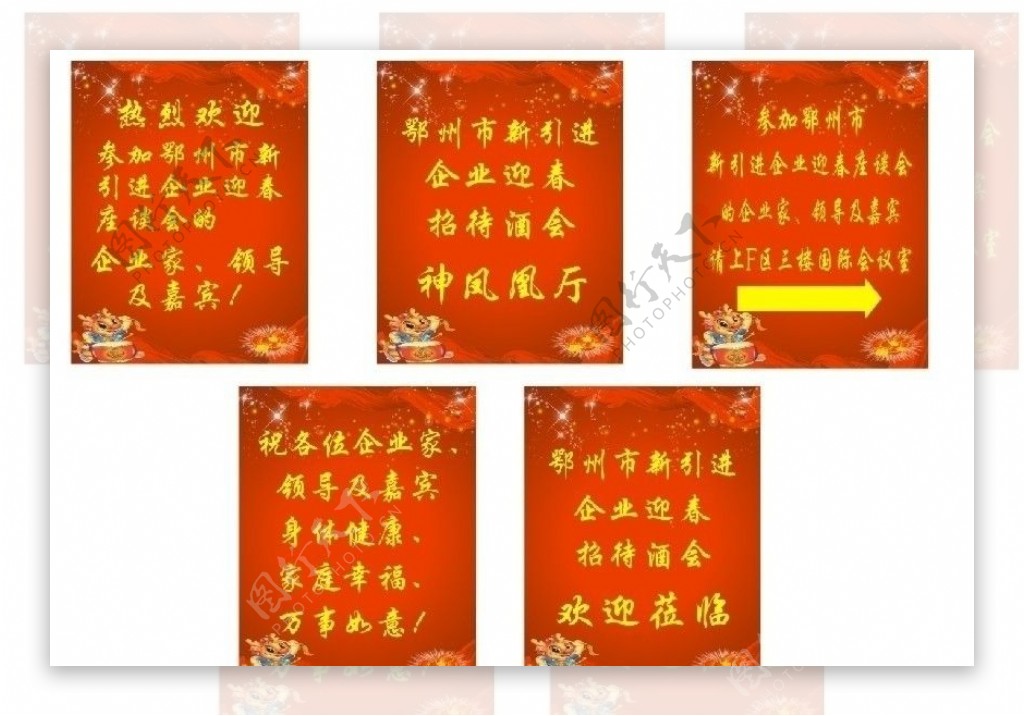 热烈欢迎
参加鄂州市新
引进企业迎春
座谈会的
企业家、领导
及嘉宾！
鄂州市新引进
企业迎春
招待酒会
神凤凰厅
参加鄂州市
新引进企业迎春座谈会
的企业家、领导及嘉宾
请上F区三楼国际会议室
祝各位企业家、
领导及嘉宾
身体健康、
家庭幸福、
万事如意！
鄂州市新引进
企业迎春
招待酒会
欢迎莅临
图行天下
PHOTOPHOTO.CN